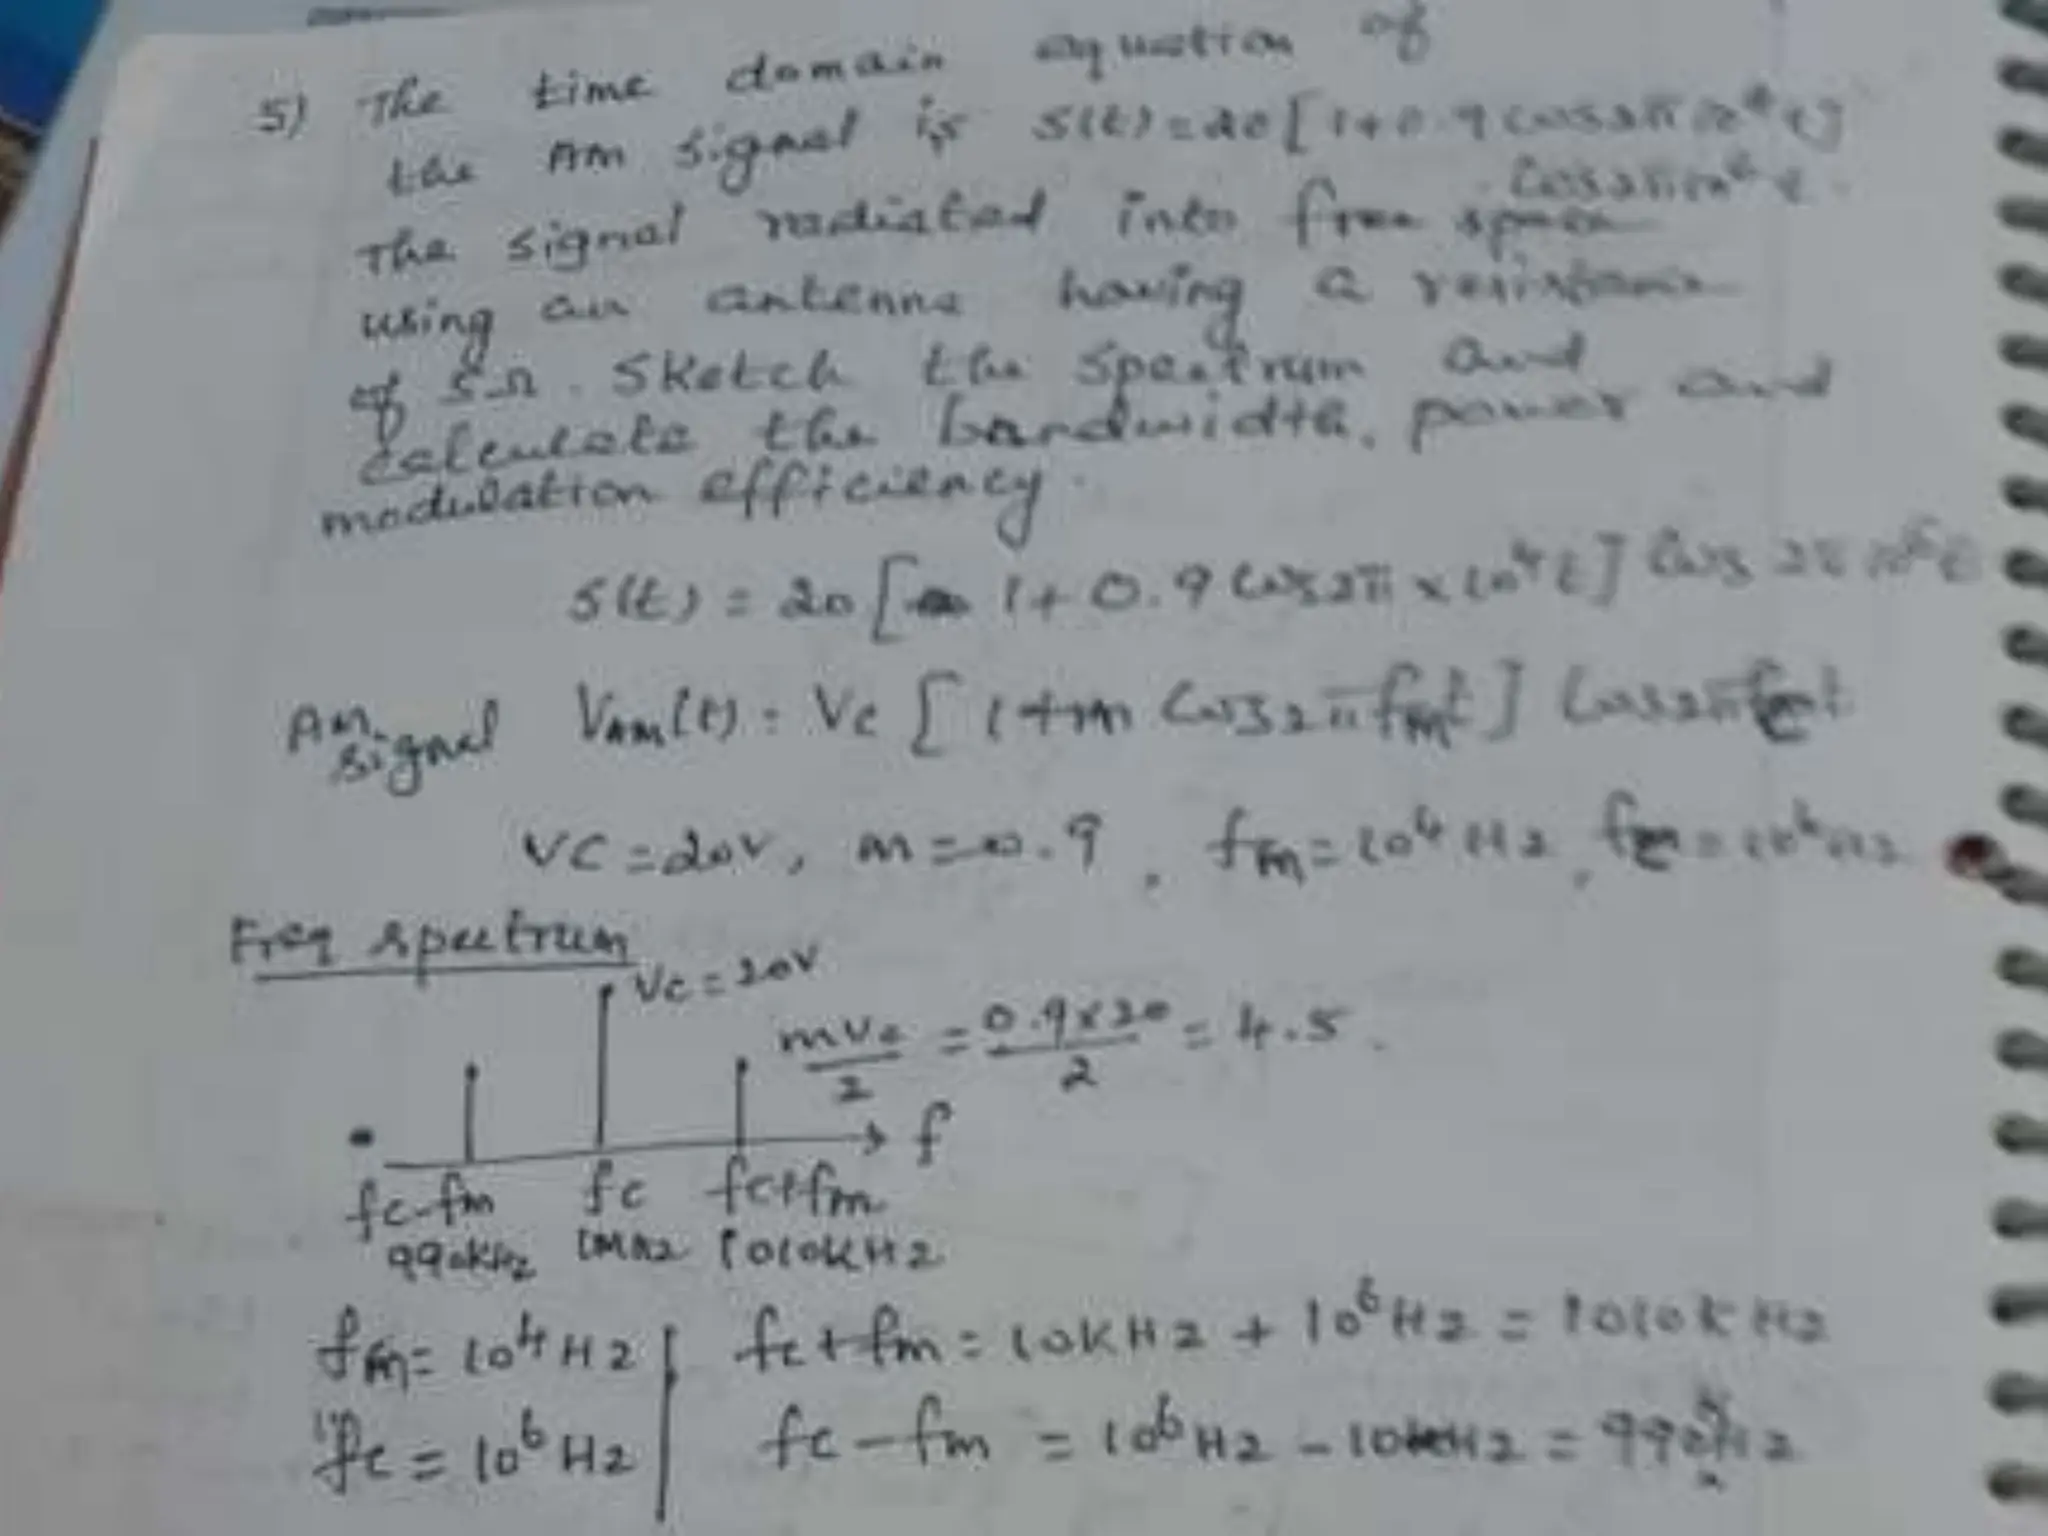 5) The time domain equation of
the AM signal is S(t) = 20 [1+0.9 cos2π 10⁴t]
cos2π10⁶t.
The signal radiated into free space
using an antenna having a resistance
of 5Ω. Sketch the spectrum and
calculate the bandwidth, power and
modulation efficiency.
S(t) = 20 [ 1+0.9 cos2π × 10⁴t] Cos 2π 10⁶t
AM signal VAM(t) = Vc [1+m Cos2πfmt] Cos2πfct
VC = 20V, m = 0.9, fm = 10⁴ Hz, fc = 10⁶Hz
Freq spectrum
Vc = 20V
mVc/2 = 0.9×20/2 = 4.5
f
fc-fm fc fc+fm
990KHz 1MHz 1010KHz
fm = 10⁴Hz | fc + fm = 10KHz + 10⁶Hz = 1010KHz
fc = 10⁶Hz | fc - fm = 10⁶Hz - 10KHz =